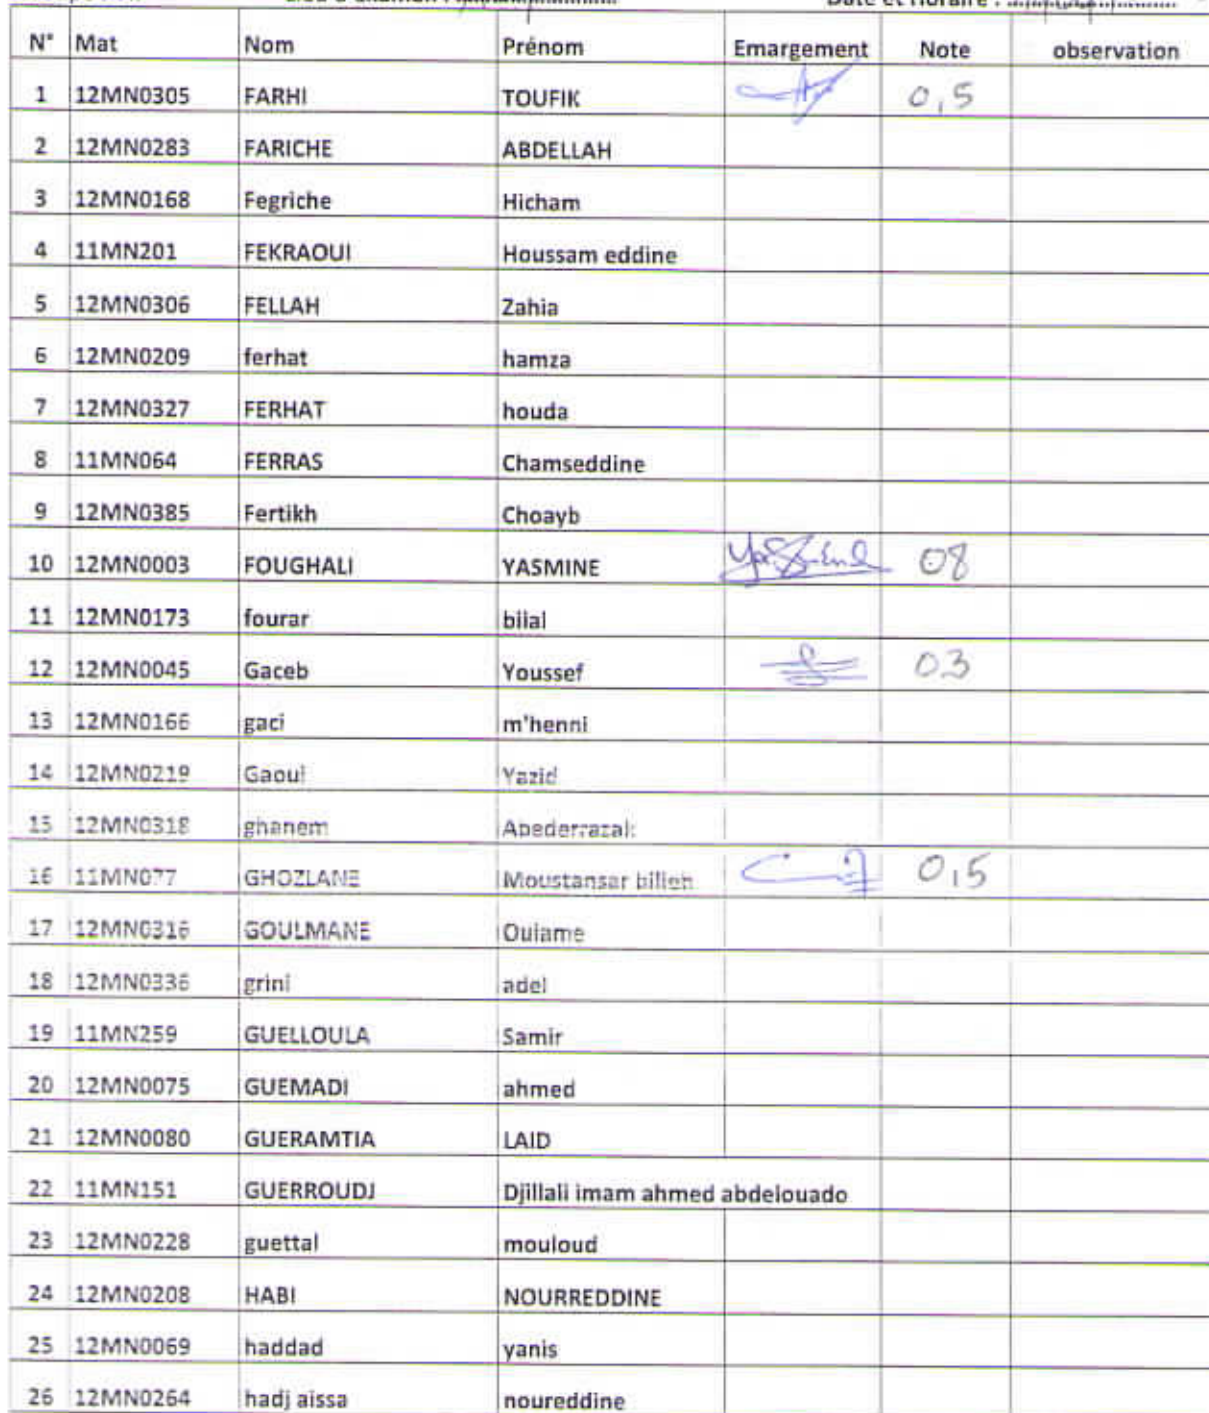 Date et Horaire :
N° Mat Nom Prénom Emargement Note observation
1 12MN0305 FARHI TOUFIK 0,5
2 12MN0283 FARICHE ABDELLAH
3 12MN0168 Fegriche Hicham
4 11MN201 FEKRAOUI Houssam eddine
5 12MN0306 FELLAH Zahia
6 12MN0209 ferhat hamza
7 12MN0327 FERHAT houda
8 11MN064 FERRAS Chamseddine
9 12MN0385 Fertikh Choayb
10 12MN0003 FOUGHALI YASMINE Yasmine 08
11 12MN0173 fourar bilal
12 12MN0045 Gaceb Youssef 03
13 12MN0166 gaci m'henni
14 12MN0219 Gaoui Yazid
15 12MN0318 ghanem Abederrazak
16 11MN077 GHOZLANE Moustansar billeh 0,5
17 12MN0316 GOULMANE Ouiame
18 12MN0336 grini adel
19 11MN259 GUELLOULA Samir
20 12MN0075 GUEMADI ahmed
21 12MN0080 GUERAMTIA LAID
22 11MN151 GUERROUDJ Djillali imam ahmed abdelouado
23 12MN0228 guettal mouloud
24 12MN0208 HABI NOURREDDINE
25 12MN0069 haddad yanis
26 12MN0264 hadj aissa noureddine